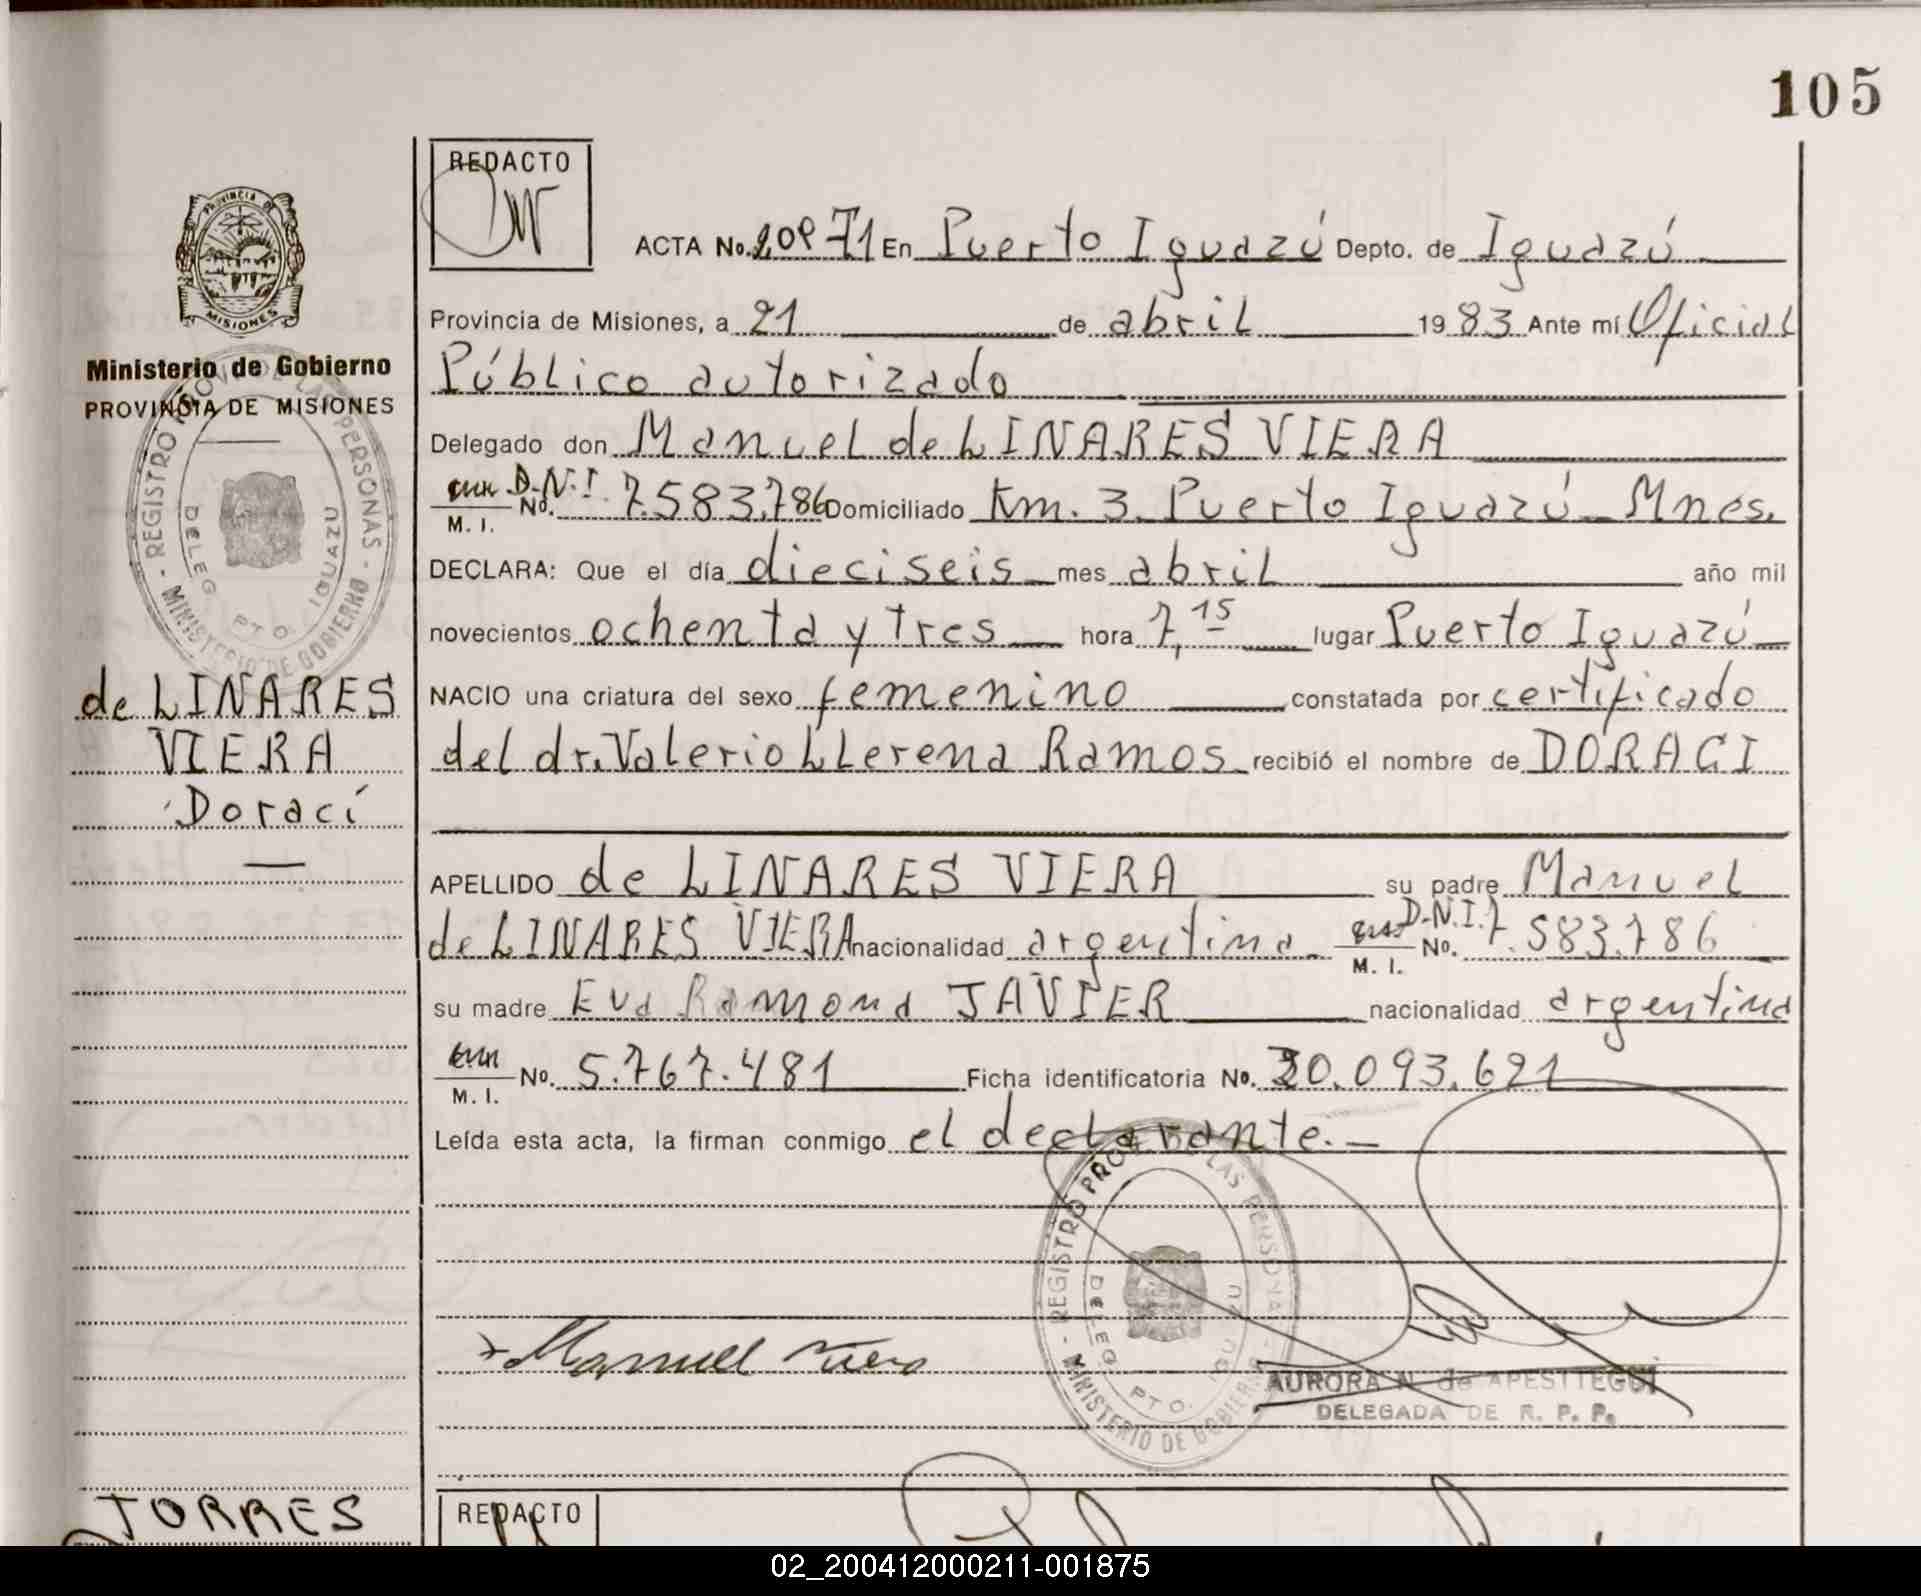 105
REDACTO
PROVINCIA DE
MISIONES
Ministerio de Gobierno
PROVINCIA DE MISIONES
REGISTRO PROV. DE LAS PERSONAS - MINISTERIO DE GOBIERNO -
DELEG. PTO. IGUAZU
de LINARES
VIERA
Doracÿ
ACTA No. En Puerto Iguazú Depto. de Iguazú
Provincia de Misiones, a 21 de abril 1983 Ante mí Oficial
Público autorizado
Delegado don Manuel de LINARES VIERA
D.N.I. No. 7.583.786 Domiciliado Km. 3. Puerto Iguazú - Mnes.
M. I.
DECLARA: Que el día dieciseis mes abril año mil
novecientos ochenta y tres hora 7,15 lugar Puerto Iguazú
NACIO una criatura del sexo femenino constatada por certificado
del dr. Valerio LLerena Ramos recibió el nombre de DORACI
APELLIDO de LINARES VIERA su padre Manuel
de LINARES VIERA nacionalidad argentina D.N.I. No. 7.583.786
M. I.
su madre Eva Ramona JAVIER nacionalidad argentina
No. 5.767.481 Ficha identificatoria No. 30.093.621
M. I.
Leída esta acta, la firman conmigo el declarante. -
REGISTRO PROV. DE LAS PERSONAS - MINISTERIO DE GOBIERNO -
DELEG. PTO. IGUAZU
Manuel Viera
AURORA N. de APESTTEGUI
DELEGADA DE R. P. P.
TORRES
REDACTO
02_200412000211-001875